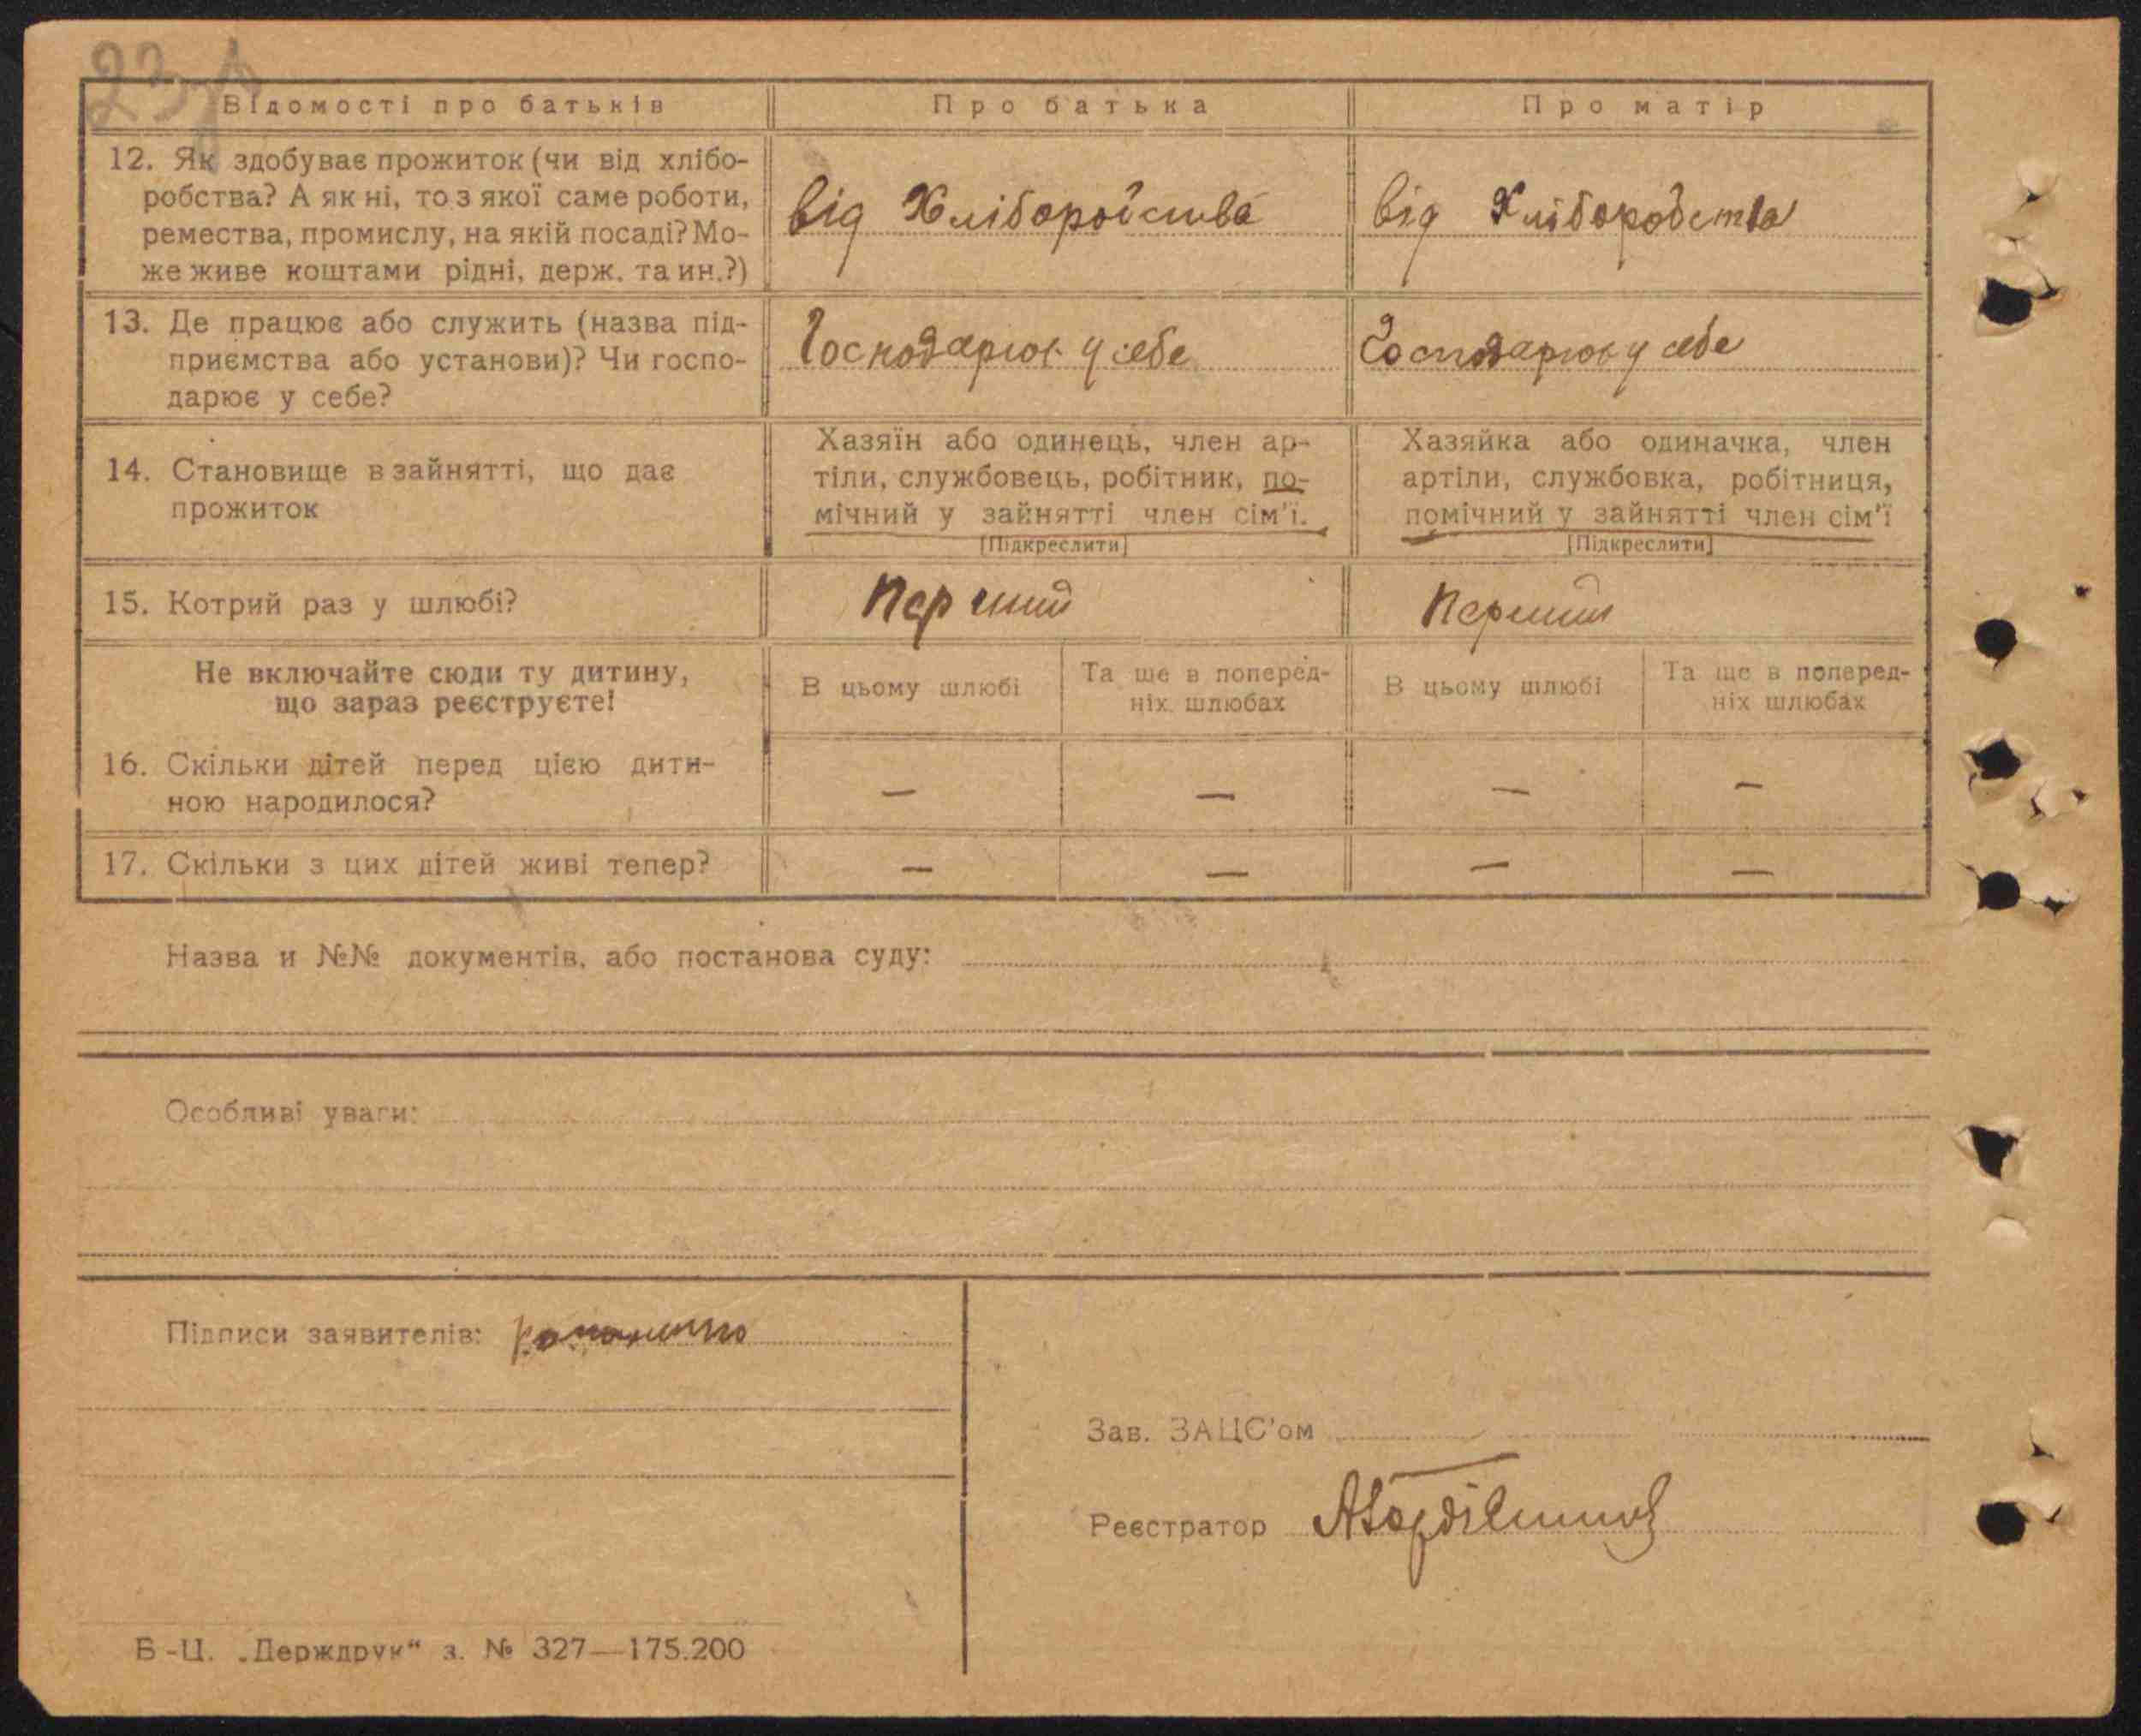 23
Відомості про батьків Про батька Про матір
12. Як здобуває прожиток (чи від хлібо-
робства? А як ні, то з якої саме роботи,
ремества, промислу, на якій посаді? Мо-
же живе коштами рідні, держ. та ин.?)
від Хліборобства від Хліборобства
13. Де працює або служить (назва під-
приємства або установи)? Чи госпо-
дарює у себе?
Господарює у себе Господарює у себе
14. Становище в зайнятті, що дає
прожиток
Хазяїн або одинець, член ар-
тіли, службовець, робітник, по-
мічний у зайнятті член сім'ї.
[Підкреслити]
Хазяйка або одиначка, член
артіли, службовка, робітниця,
помічний у зайнятті член сім'ї
[Підкреслити]
15. Котрий раз у шлюбі? Перший Перший
Не включайте сюди ту дитину,
що зараз реєструєте!
В цьому шлюбі
Та ще в поперед-
ніх шлюбах
В цьому шлюбі
Та ще в поперед-
ніх шлюбах
16. Скільки дітей перед цією дити-
ною народилося?
— — — —
17. Скільки з цих дітей живі тепер? — — — —
Назва и №№ документів, або постанова суду:
Особливі уваги:
Підписи заявителів:
Зав. ЗАЦС'ом
Реєстратор
Б-Ц. „Держдрук“ з. № 327—175.200